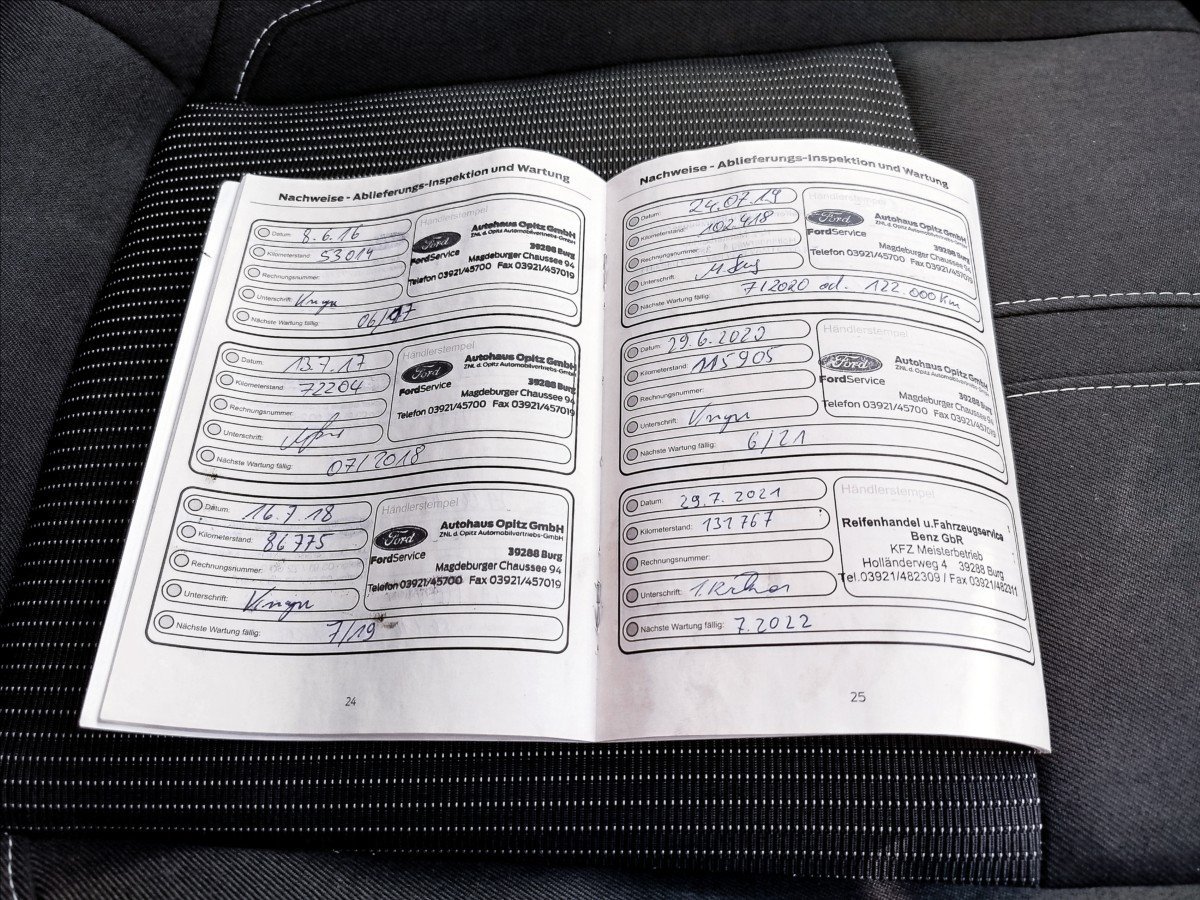 Nachweise - Ablieferungs-Inspektion und Wartung
Datum: 8.6.16
Kilometerstand: 53014
Rechnungsnummer:
Unterschrift:
Nächste Wartung fällig: 06/17
Händlerstempel
Ford
FordService
Autohaus Opitz GmbH
ZNL d. Opitz Automobilvertriebs-GmbH
39288 Burg
Magdeburger Chaussee 94
Telefon 03921/45700 Fax 03921/457019
Datum: 13.7.17
Kilometerstand: 72204
Rechnungsnummer:
Unterschrift:
Nächste Wartung fällig: 07/2018
Händlerstempel
Ford
FordService
Autohaus Opitz GmbH
ZNL d. Opitz Automobilvertriebs-GmbH
39288 Burg
Magdeburger Chaussee 94
Telefon 03921/45700 Fax 03921/457019
Datum: 16.7.18
Kilometerstand: 86775
Rechnungsnummer:
Unterschrift:
Nächste Wartung fällig: 7/19
Händlerstempel
Ford
FordService
Autohaus Opitz GmbH
ZNL d. Opitz Automobilvertriebs-GmbH
39288 Burg
Magdeburger Chaussee 94
Telefon 03921/45700 Fax 03921/457019
24
Nachweise - Ablieferungs-Inspektion und Wartung
Datum: 24.07.19
Kilometerstand: 102.418
Rechnungsnummer:
Unterschrift:
Nächste Wartung fällig: 7/2020 od. 122.000 Km
Händlerstempel
Ford
FordService
Autohaus Opitz GmbH
ZNL d. Opitz Automobilvertriebs-GmbH
39288 Burg
Magdeburger Chaussee 94
Telefon 03921/45700 Fax 03921/457019
Datum: 29.6.2020
Kilometerstand: 115905
Rechnungsnummer:
Unterschrift:
Nächste Wartung fällig: 6/21
Händlerstempel
Ford
FordService
Autohaus Opitz GmbH
ZNL d. Opitz Automobilvertriebs-GmbH
39288 Burg
Magdeburger Chaussee 94
Telefon 03921/45700 Fax 03921/457019
Datum: 29.7.2021
Kilometerstand: 131767
Rechnungsnummer:
Unterschrift:
Nächste Wartung fällig: 7.2022
Händlerstempel
Reifenhandel u.Fahrzeugservice
Benz GbR
KFZ Meisterbetrieb
Holländerweg 4 39288 Burg
Tel.03921/482309 / Fax 03921/482311
25